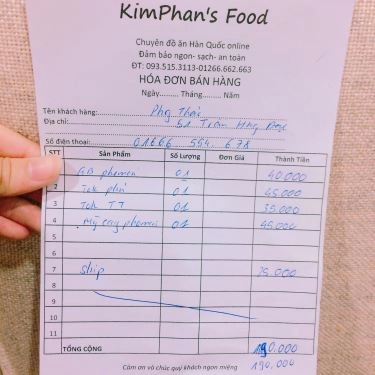 KimPhan's Food
Chuyên đồ ăn Hàn Quốc online
Đảm bảo ngon- sạch- an toàn
ĐT: 093.515.3113-01266.662.663
HÓA ĐƠN BÁN HÀNG
Ngày......... Tháng......... Năm
Tên khách hàng: Phg Thảo
Địa chỉ: 51 Trần Hưng Đạo
Số điện thoại: 01666 554 678
STT Sản Phẩm Số Lượng Đơn Giá Thành Tiền
GB phomen 01 40.000
2 Tok phô 01 65.000
3 Tok TT 01 35.000
4 Mỳ cay phomen 01 45.000
5
6
7 Ship 25.000
8
9
10
11
TỔNG CỘNG 190.000
190.000
Cảm ơn và chúc quý khách ngon miệng